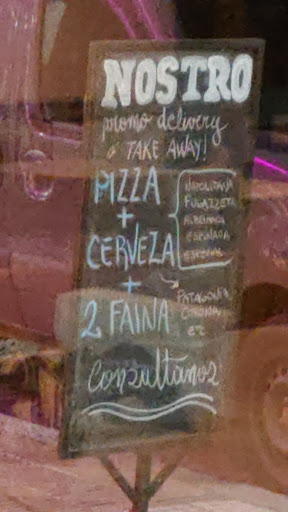 NOSTRO
promo delivery
o TAKE AWAY!
PIZZA
+
CERVEZA
+
2 FAINA
NAPOLITANA
FUGAZZETA
ESPINACA
PATAGONIA
CORONA
etc
Consultanos